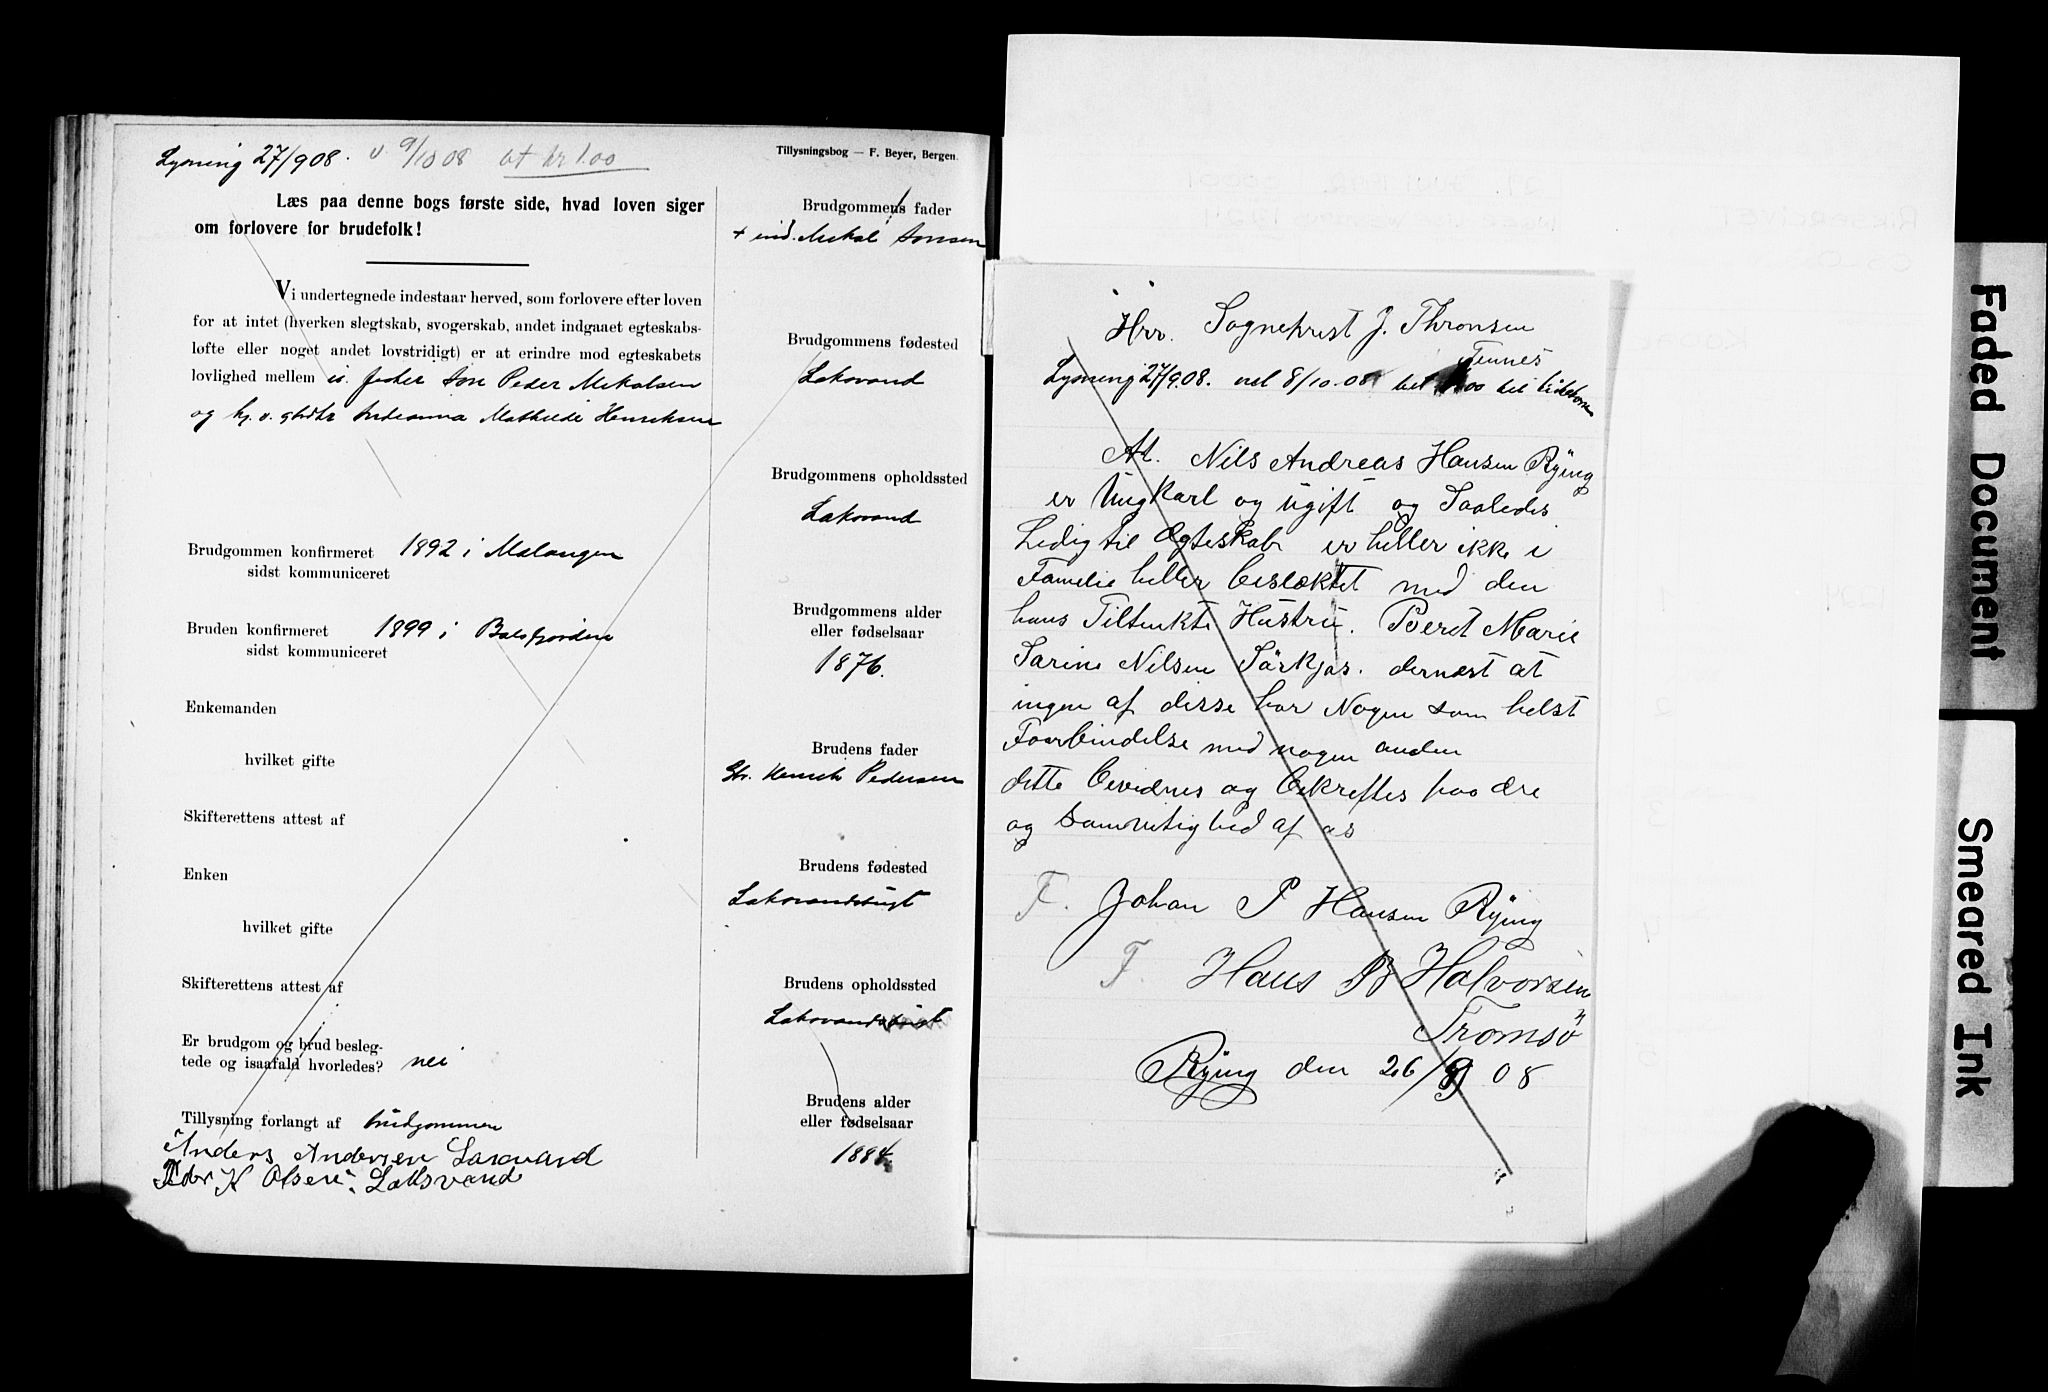 Lysning 27/908. v. 9/10 08 at kr 1.00
Tillysningsbog — F. Beyer, Bergen.
Læs paa denne bogs første side, hvad loven siger
om forlovere for brudefolk!
Vi undertegnede indestaar herved, som forlovere efter loven
for at intet (hverken slegtskab, svogerskab, andet indgaaet egteskabs-
løfte eller noget andet lovstridigt) er at erindre mod egteskabets
lovlighed mellem Peder Mikalsen
og Mathilde Henriksen
Brudgommen konfirmeret 1892 i Malangen
sidst kommuniceret
Bruden konfirmeret 1899 i Balsfjorden
sidst kommuniceret
Enkemanden
hvilket gifte
Skifterettens attest af
Enken
hvilket gifte
Skifterettens attest af
Er brudgom og brud besleg-
tede og isaafald hvorledes? nei
Tillysning forlangt af brudgommen
Anders Andersen Laxvand
Peder K Olsen, Laksvand
Brudgommens fader
+ ind. Mikal Jonsen
Brudgommens fødested
Laksvand
Brudgommens opholdssted
Laksvand
Brudgommens alder
eller fødselsaar
1876.
Brudens fader
Henrik Pedersen
Brudens fødested
Laksvandbugt
Brudens opholdssted
Laksvandbugt
Brudens alder
eller fødselsaar
1884.
Hrr. Sogneprest J. Thronsen
Tennes
Lysning 27/9.08. vel 8/10-08
At. Nils Andreas Hansen Rÿing
er Ungkarl og ugift og Saaledes
Ledig til Ægteskab er heller ikke i
Familie heller beslæktet med den
hans Tiltenkte Hustru. Beret Marie
Sarine Nilsen Sörkjos. dernæst at
ingen af disse har Nogen som helst
Foorbindelse med nogen anden
dette bevidnes og bekreftes paa ære
og samvitighed af os
F. Johan P Hansen Rÿing
F. Hans B Halvorsen
Tromsö
Rÿing den 26/9 08
Faded Document
Smeared Ink